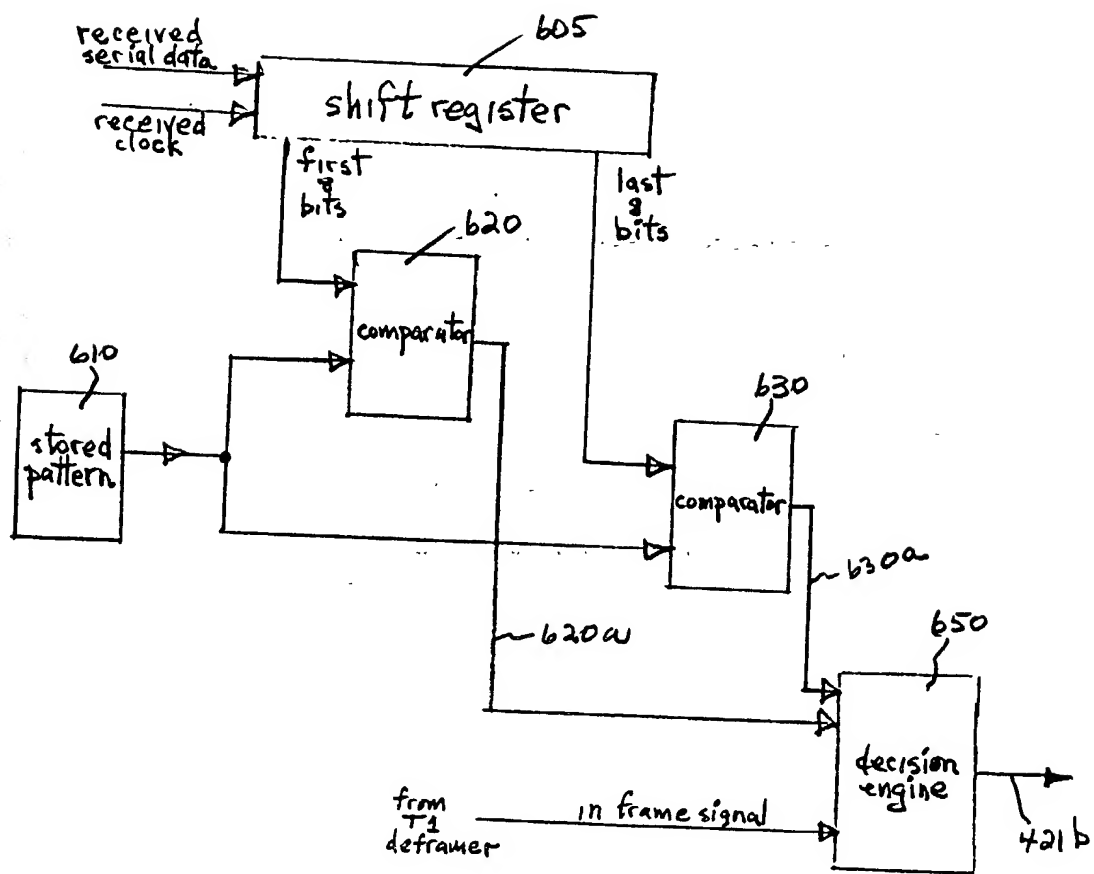 received
serial data
received
clock
605
shift register
first
8
bits
last
8
bits
620
comparator
610
stored
pattern
630
comparator
630a
620a
650
decision
engine
from
T1
deframer
in frame signal
421b